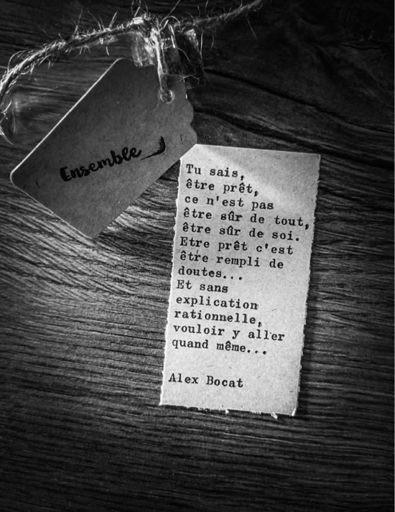 Ensemble
Tu sais,
être prêt,
ce n'est pas
être sûr de tout,
être sûr de soi.
Etre prêt c'est
être rempli de
doutes...
Et sans
explication
rationnelle,
vouloir y aller
quand même...
Alex Bocat